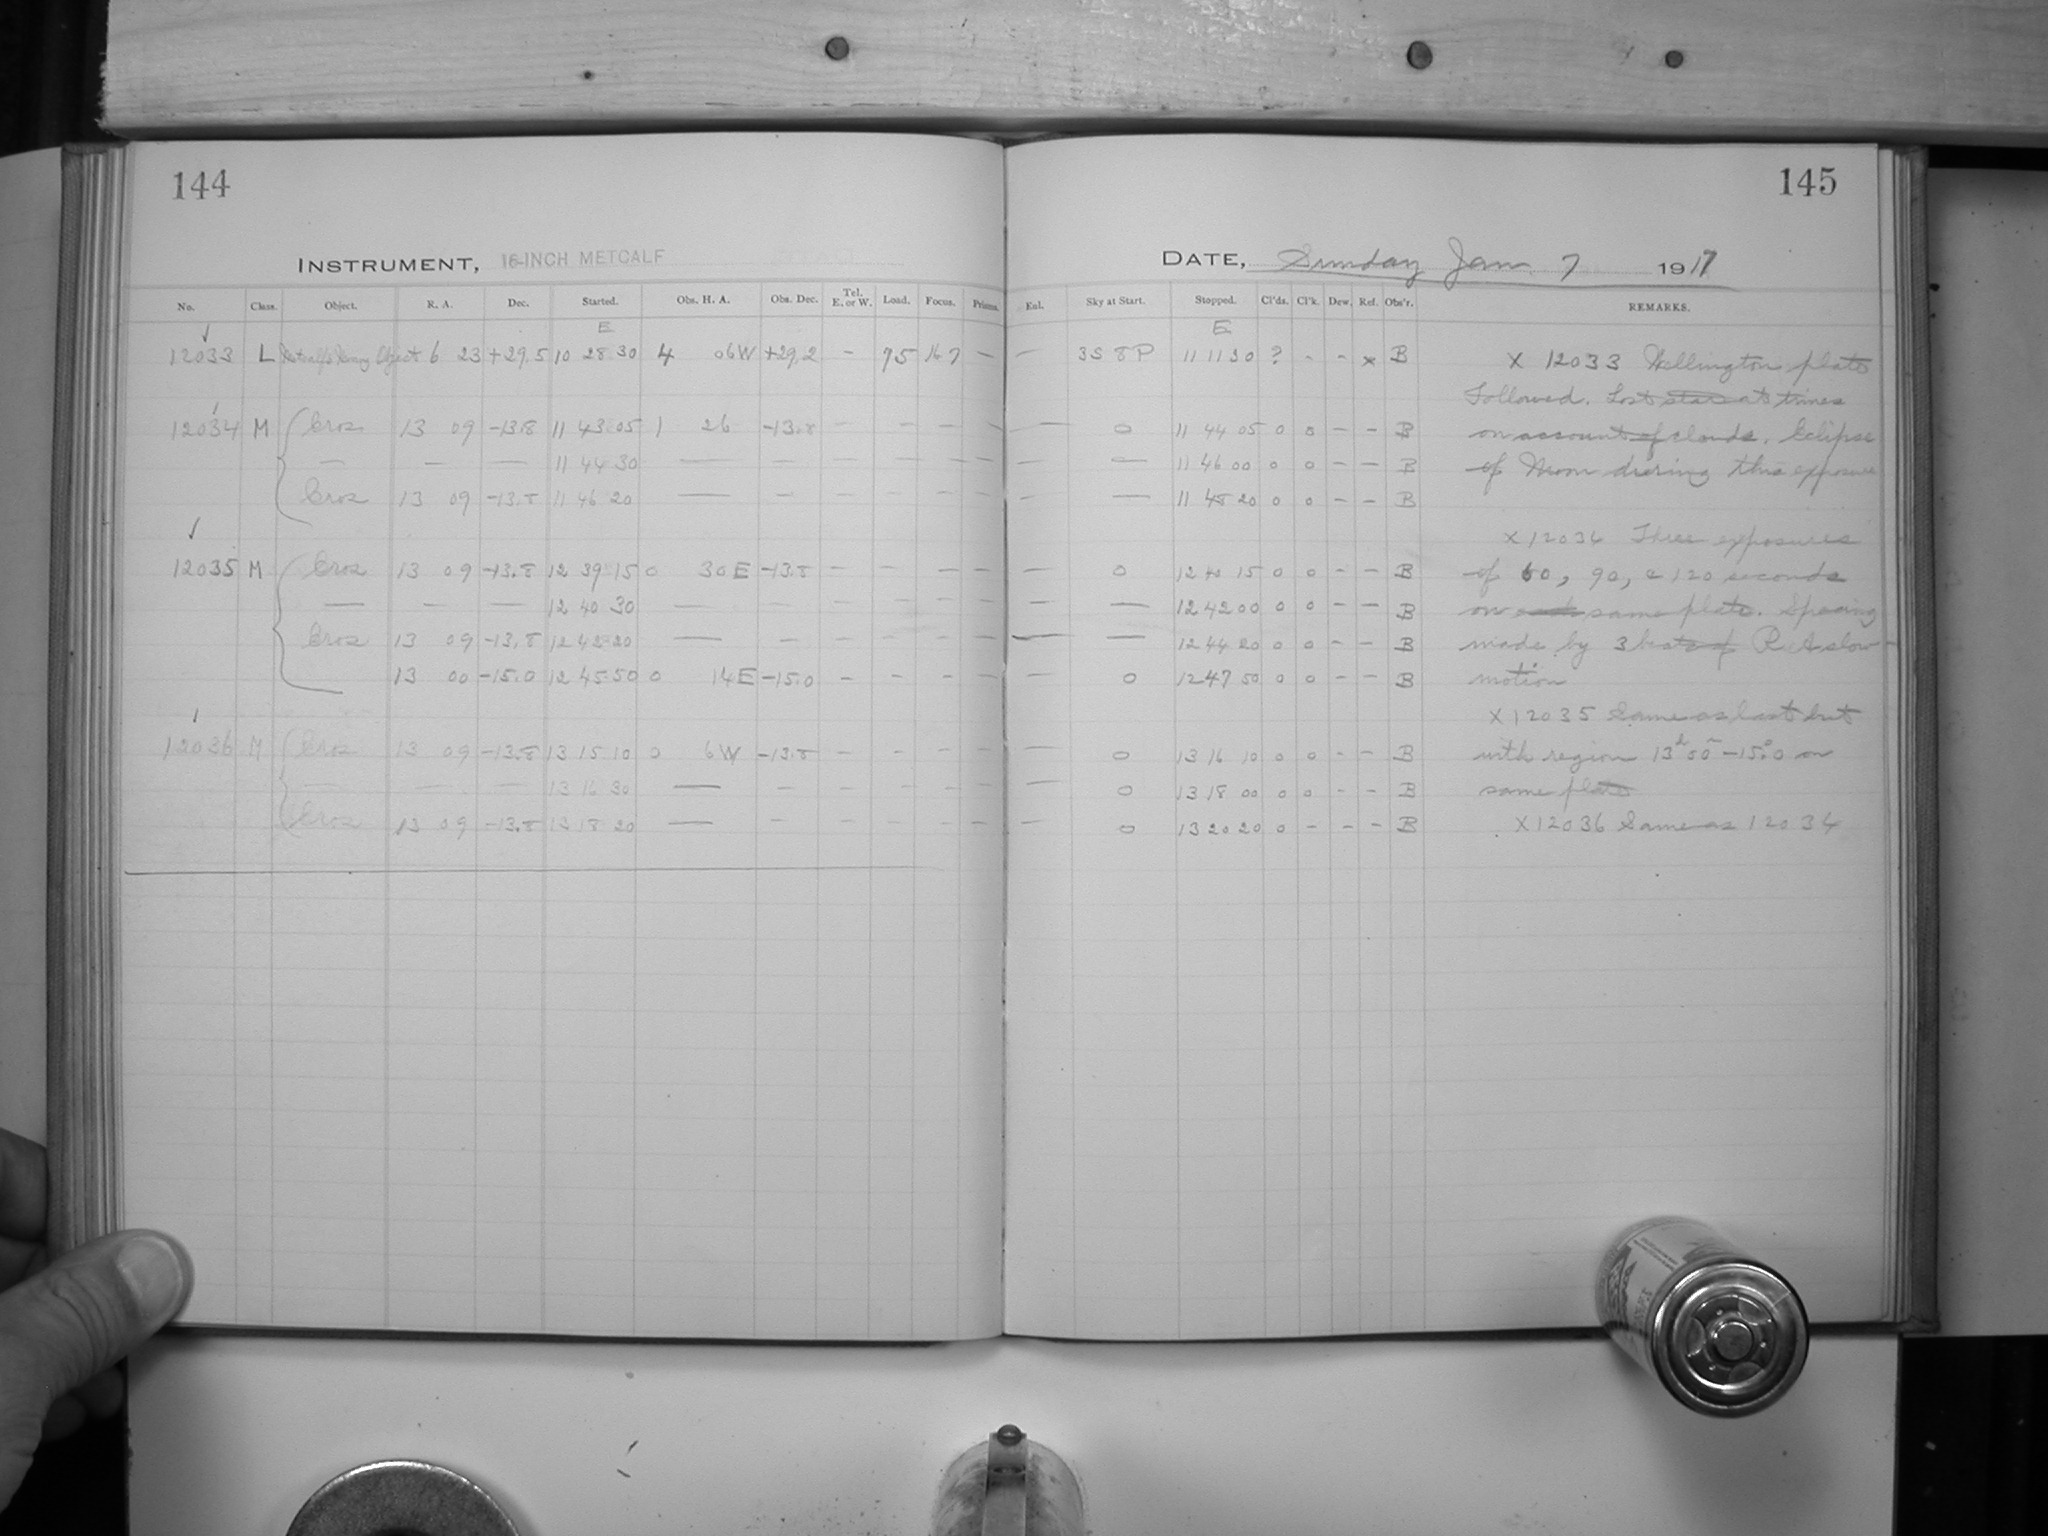 144
INSTRUMENT, 16-INCH METCALF
No. Class. Object. R. A. Dec. Started. Obs. H. A. Obs. Dec. Tel. E. or W. Load. Focus. Prisms.
E
12033 L Metcalf's Object 6 23 +29.5 10 28 30 4 06W +29.2 — 95 16.7 —
12034 M Eros 13 09 -13.8 11 43 05 1 26 -13.8 — — — —
— — — 11 44 30 — — — — — —
Eros 13 09 -13.8 11 46 20 — — — — — —
12035 M Eros 13 09 -13.8 12 39 15 0 30E -13.8 — — — —
— — — 12 40 30 — — — — — —
Eros 13 09 -13.8 12 42 20 — — — — — —
13 00 -15.0 12 45 50 0 14E -15.0 — — — —
12036 M Eros 13 09 -13.8 13 15 10 0 6W -13.8 — — — —
— — — 13 16 30 — — — — — —
Eros 13 09 -13.8 13 18 20 — — — — — —
145
DATE, Sunday Jan. 7 1917
Enl. Sky at Start. Stopped. Cl'ds. Cl'k. Dew. Ref. Obs'r. REMARKS.
E
— 3S 8P 11 11 30 ? - - x B
— 0 11 44 05 0 0 - - B
— — 11 46 00 0 0 - - B
— — 11 48 20 0 0 - - B
— 0 12 40 15 0 0 - - B
— — 12 42 00 0 0 - - B
— — 12 44 20 0 0 - - B
— 0 12 47 50 0 0 - - B
— 0 13 16 10 0 0 - - B
— 0 13 18 00 0 0 - - B
— 0 13 20 20 0 - - - B
X 12033 Wellington plate
Followed. Lost star at times
on account of clouds. Eclipse
of Moon during this exposure
X 12034 Three exposures
of 60, 90, & 120 seconds
on same plate. Spacing
made by 3 beats of R.A slow
motion
X 12035 Same as last but
with region 13h 00m -15°.0 on
same plate
X 12036 Same as 12034